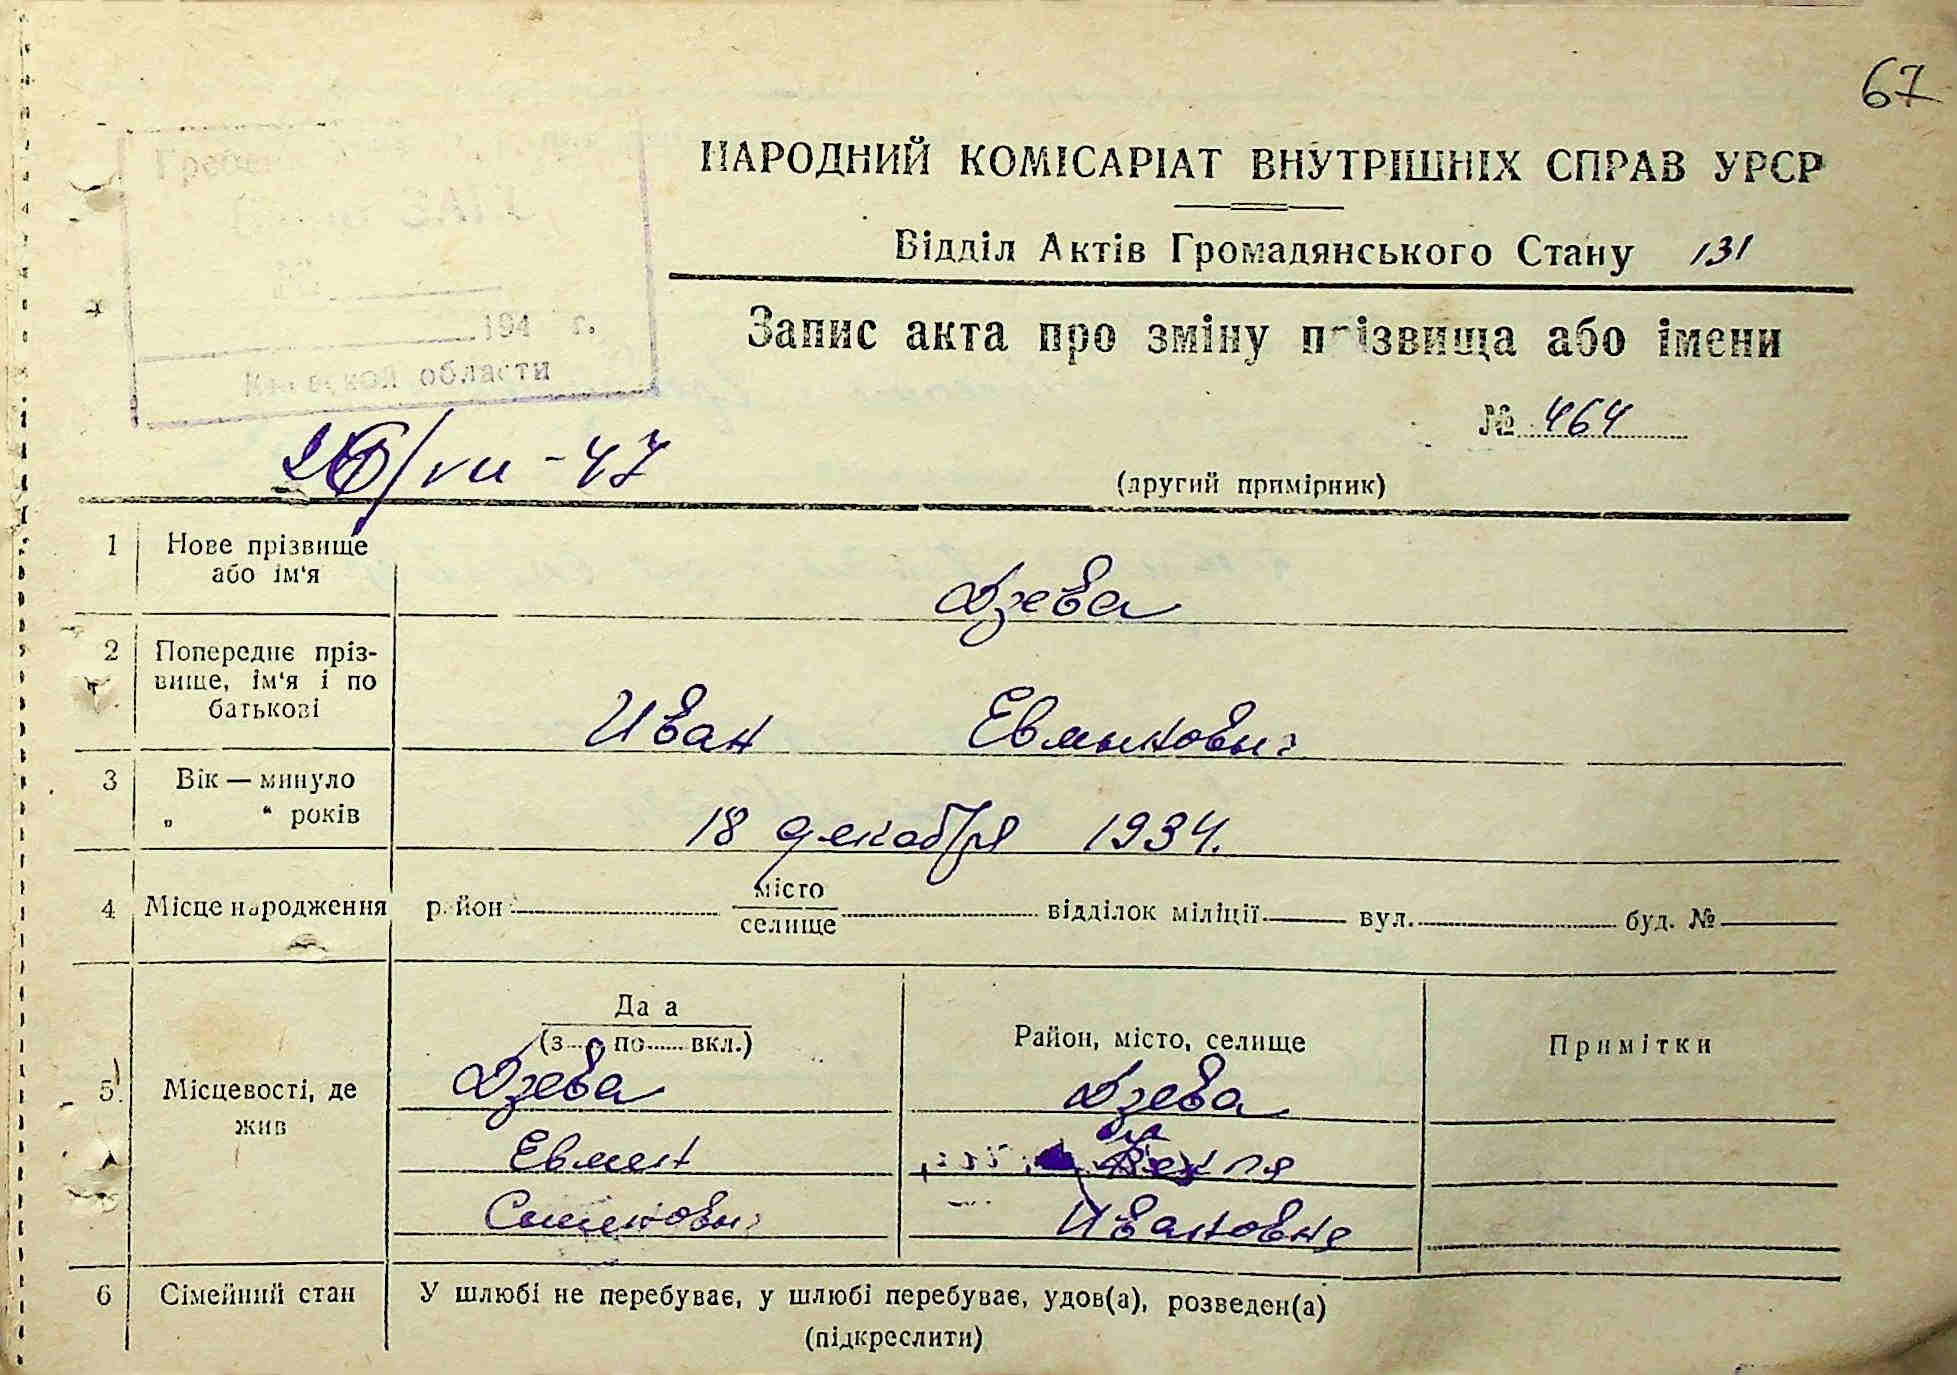 67
НАРОДНИЙ КОМІСАРІАТ ВНУТРІШНІХ СПРАВ УРСР
Відділ Актів Громадянського Стану 131
Запис акта про зміну прізвища або імени
194 г.
области
№ 464
26/VII - 47
(другий примірник)
1 Нове прізвище
або ім'я
Дзева
2 Попереднє пріз-
вище, ім'я і по
батькові
Иван Евменович
3 Вік — минуло
„ “ років
18 декабря 1934.
4 Місце народження район місто
селище відділок міліції вул. буд. №
Да а
(з ... по ... вкл.) Район, місто, селище Примітки
5 Місцевості, де
жив
Дзева Дзева
Евмен Фекля
Семенович Ивановна
6 Сімейний стан У шлюбі не перебуває, у шлюбі перебуває, удов(а), розведен(а)
(підкреслити)